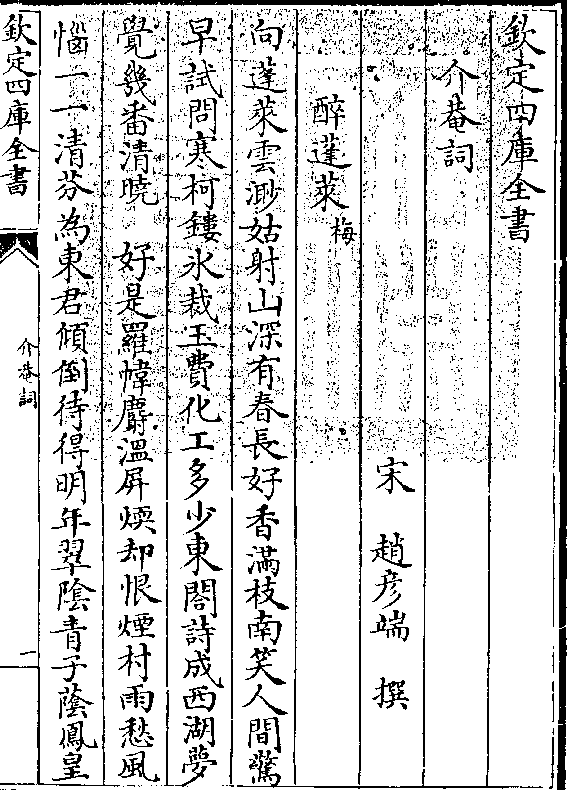 欽定四庫全書
介菴詞
宋 趙彥端 撰
醉蓬萊 梅
向蓬萊雲渺姑射山深有春長好香滿枝南笑人間驚
早試問寒柯鏤氷裁玉費化工多少東閣詩成西湖夢
覺幾番清曉 好是羅幃麝溫屏煖却恨煙村雨愁風
惱一一清芬為東君傾倒待得明年翠陰青子蔭鳳皇
欽定四庫全書
介菴詞
一